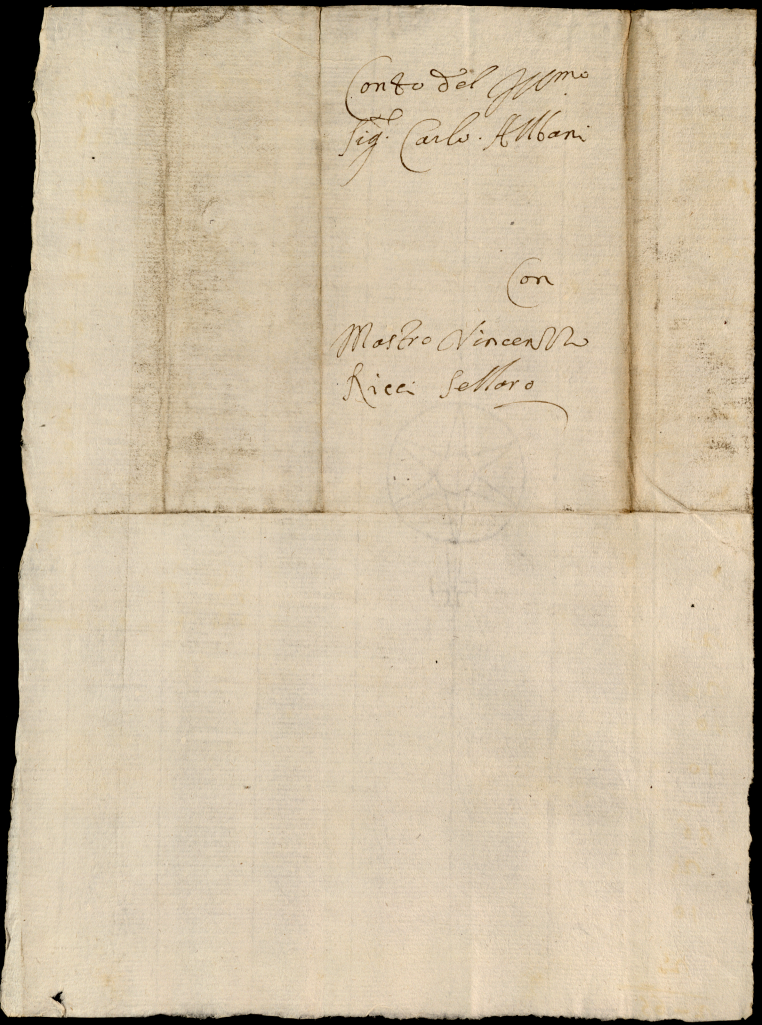 Conto del Illmo
Sigr. Carlo. Albani
Con
Mastro Vincenzo
Ricci Sellaro